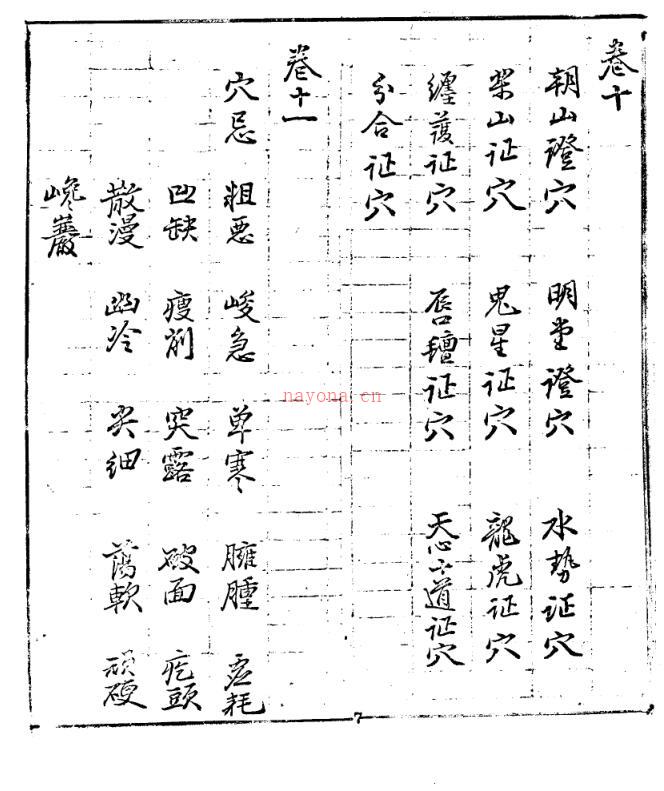 卷十
朝山證穴 明堂證穴 水势证穴
樂山证穴 鬼星证穴 龍虎证穴
纏護证穴 唇氊证穴 天心十道证穴
分合证穴
卷十一
穴忌 粗恶 峻急 单寒 臃腫 虚耗
凹缺 瘦削 突露 破面 疙頭
散漫 幽冷 尖细 蕩軟 頑硬
巉巖
nayona.cn
7